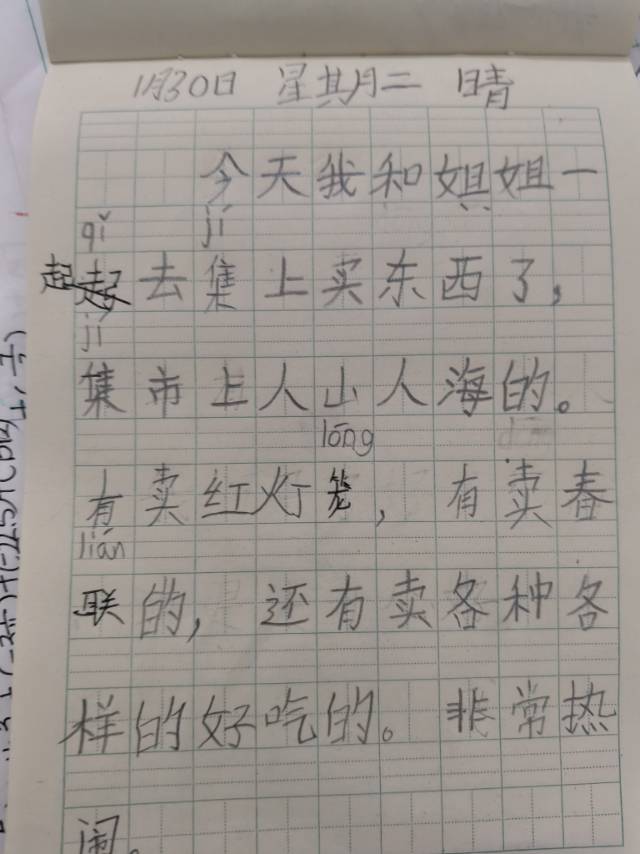 1月30日 星期二 晴
今天我和姐姐一
qǐ jí
起起去集上买东西了,
jí
集市上人山人海的。
lōng
有卖红灯笼,有卖春
lián
联的,还有卖各种各
样的好吃的。非常热
闹。